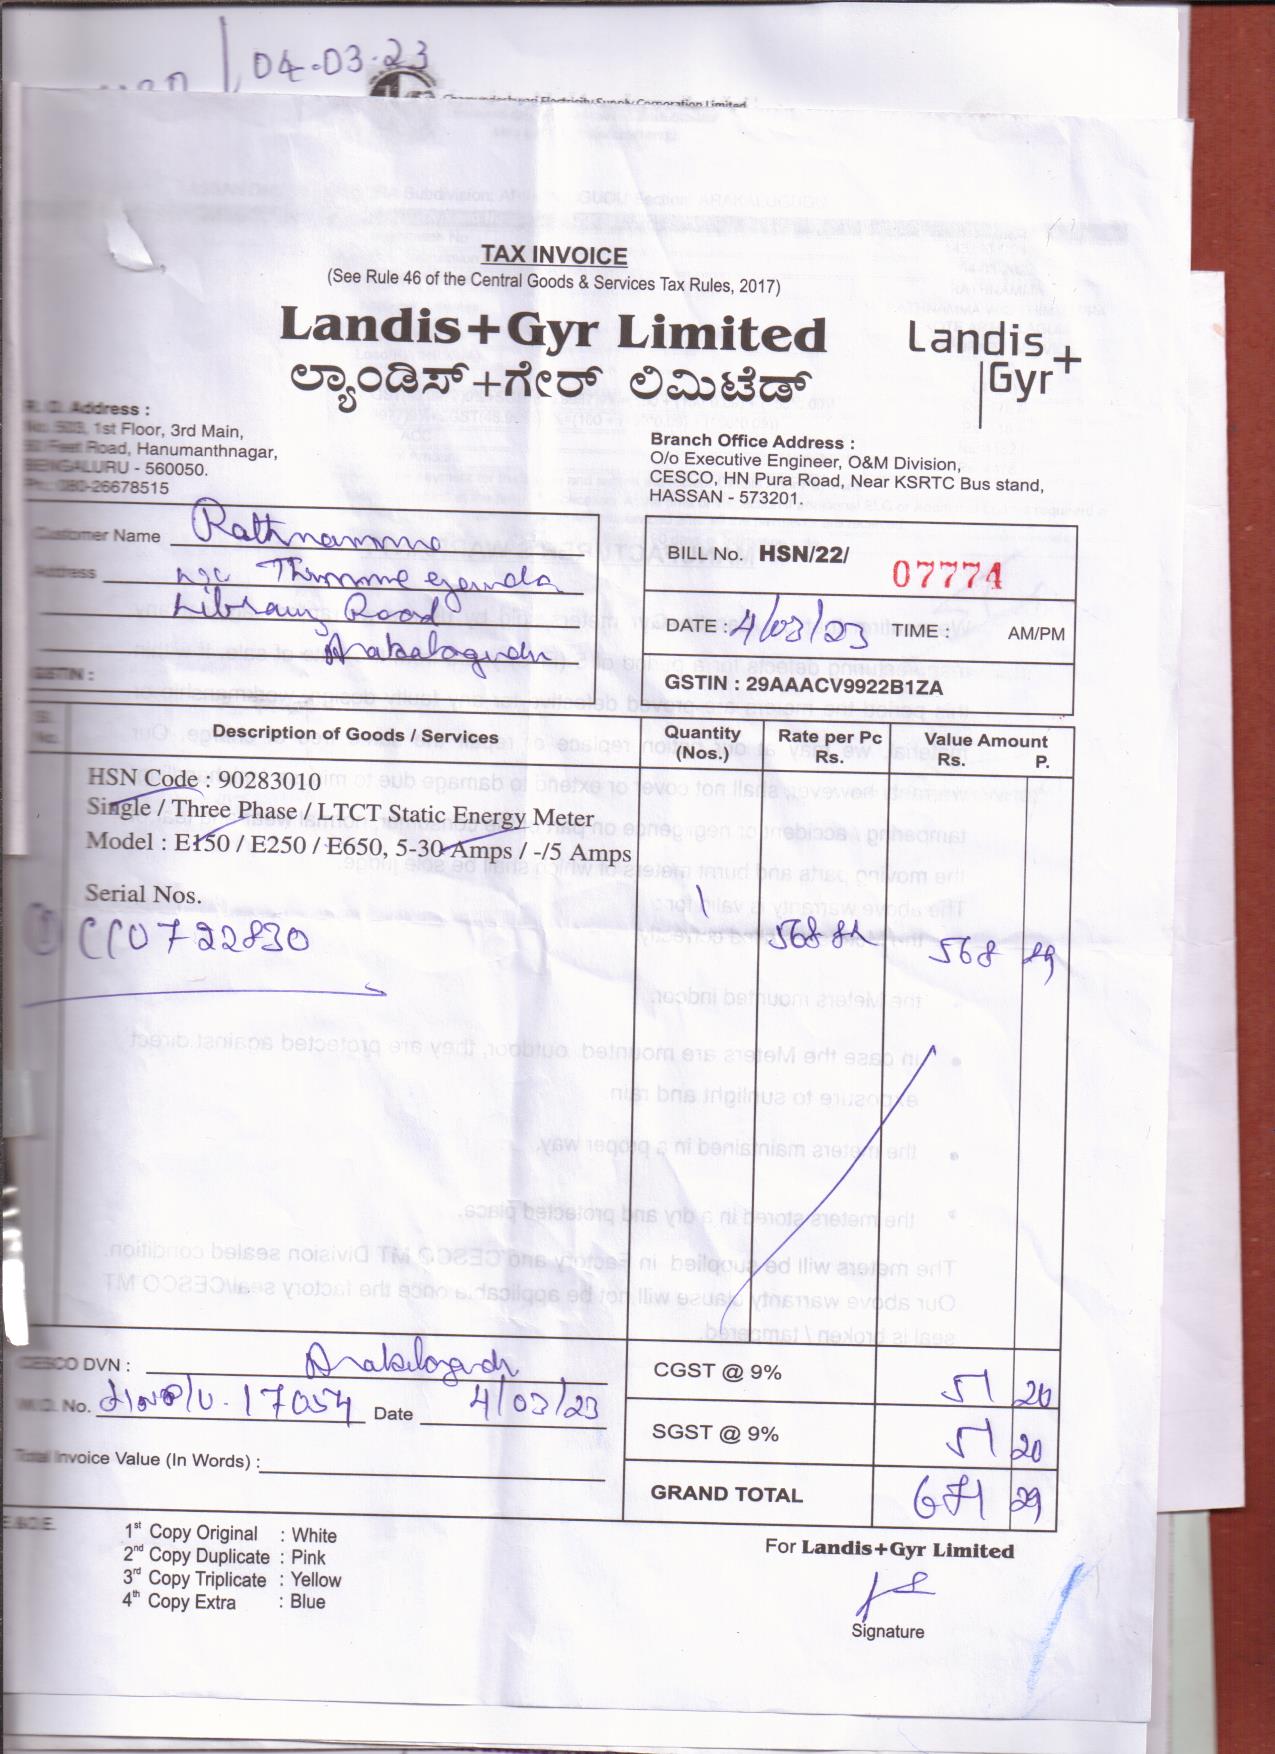 04-03-23
Chamundeshwari Electricity Supply Corporation Limited
TAX INVOICE
(See Rule 46 of the Central Goods & Services Tax Rules, 2017)
Landis+Gyr Limited
ಲ್ಯಾಂಡಿಸ್+ಗೇರ್ ಲಿಮಿಟೆಡ್
Landis+
Gyr
R. O. Address :
No. 503, 1st Floor, 3rd Main,
80 Feet Road, Hanumanthnagar,
BENGALURU - 560050.
Ph.: 080-26678515
Branch Office Address :
O/o Executive Engineer, O&M Division,
CESCO, HN Pura Road, Near KSRTC Bus stand,
HASSAN - 573201.
Customer Name Rathnamma
Address Thimmegowda
Library Road
Arakalagudu
GSTIN :
BILL No. HSN/22/ 07774
DATE : 4/03/23 TIME : AM/PM
GSTIN : 29AAACV9922B1ZA
Sl. No. Description of Goods / Services Quantity (Nos.) Rate per Pc Rs. Value Amount Rs. P.
HSN Code : 90283010
Single / Three Phase / LTCT Static Energy Meter
Model : E150 / E250 / E650, 5-30 Amps / -/5 Amps
Serial Nos. 1
① CC0722830 568 89 568 89
CESCO DVN : Arakalagudu
CGST @ 9% 51 20
W.O. No. 17054 Date 4/03/23
SGST @ 9% 51 20
Total Invoice Value (In Words) :
GRAND TOTAL 671 29
E.&O.E.
1st Copy Original : White
2nd Copy Duplicate : Pink
3rd Copy Triplicate : Yellow
4th Copy Extra : Blue
For Landis+Gyr Limited
Signature